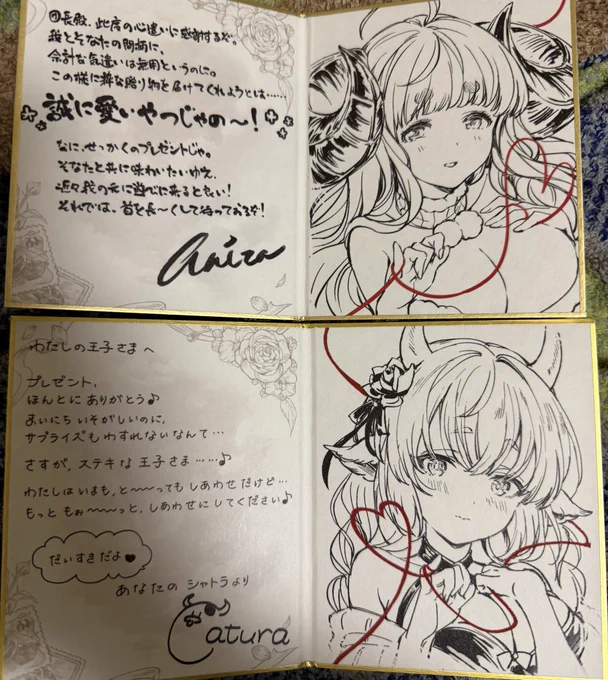 団長殿、此度の心遣いに感謝するぞ。
我とそなたの間柄に、
余計な気遣いは無用というのに。
この様に粋な贈り物を届けてくれようとは……
誠に愛いやつじゃの〜!
なに、せっかくのプレゼントじゃ。
そなたと共に味わいたいゆえ、
近々我の元に遊びに来ると良い!
それでは、首を長〜くして待っておるぞ!
Anira
わたしの王子さまへ
プレゼント、
ほんとにありがとう♪
まいにちいそがしいのに、
サプライズもわすれないなんて…
さすが、ステキな王子さま……♪
わたしはいまも、と〜〜ってもしあわせだけど…
もっともぉ〜〜っと、しあわせにしてください♪
だいすきだよ♥
あなたのシャトラより
Catura